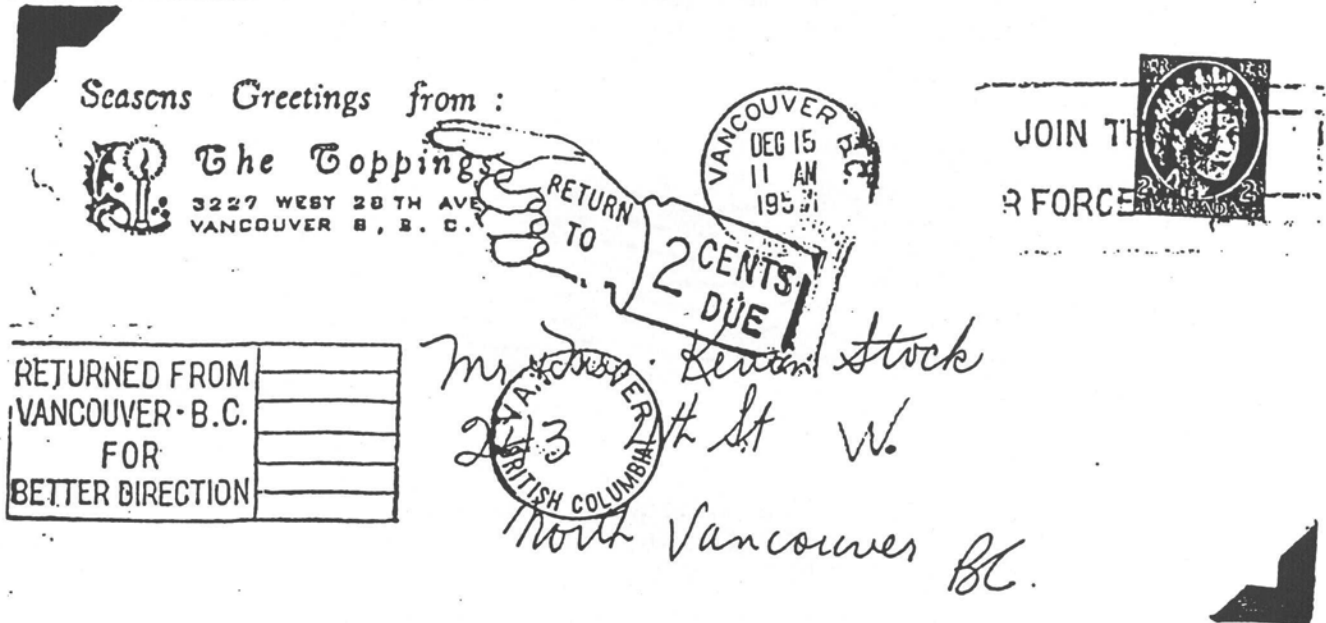 Seasons Greetings from :
The Toppings
3227 WEST 28TH AVE
VANCOUVER 8, B. C.
RETURN
TO
2 CENTS
DUE
VANCOUVER B.C.
DEC 15
11 AM
JOIN TH
R FORCE
2 2
CANADA
RETURNED FROM
VANCOUVER · B.C.
FOR
BETTER DIRECTION
Mr. Stock
St W.
North Vancouver
BC.
VANCOUVER
BRITISH COLUMBIA